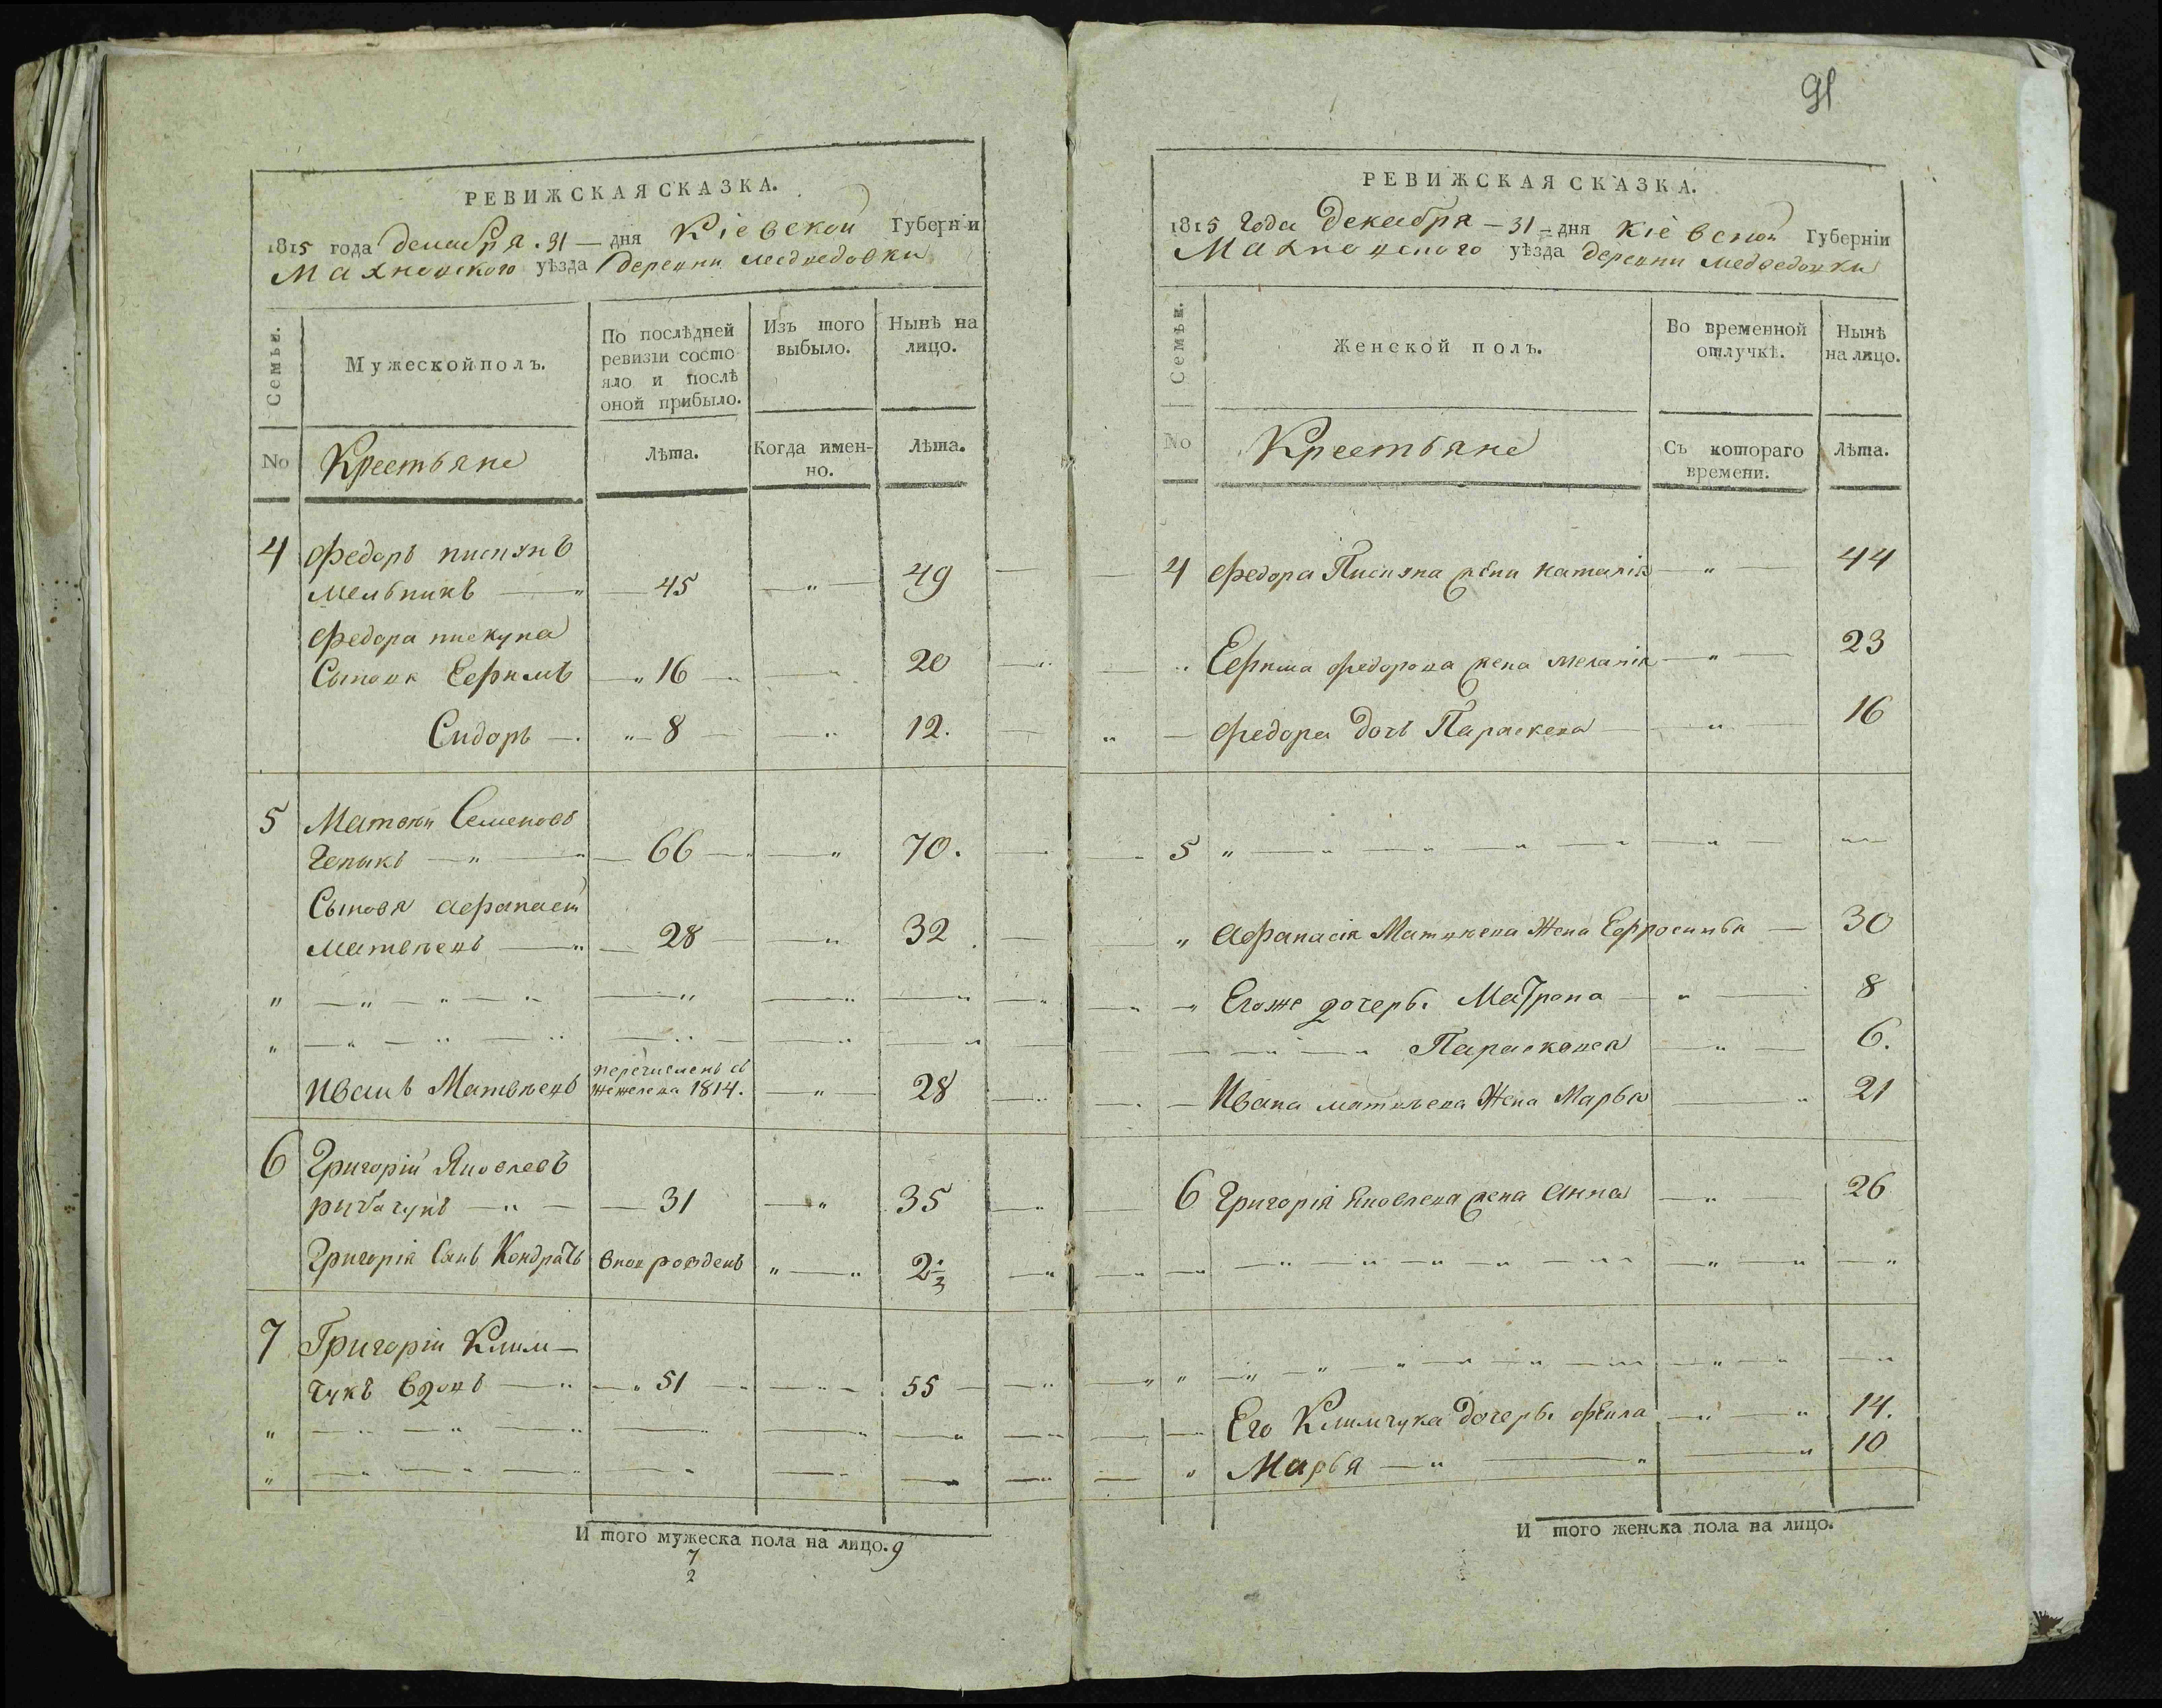 91
РЕВИЖСКАЯ СКАЗКА.
1815 года декабря 31 дня Кіевской Губерніи
Махновского уѣзда деревни медведовки
Семьи.
Мужеской полъ.
По послѣдней ревизіи состояло и послѣ оной прибыло.
Изъ того выбыло.
Нынѣ на лицо.
No
Крестьяне
Лѣта.
Когда именно.
Лѣта.
4 Федоръ
мельникъ 45 49
Федора пискуна
Сыновя Ефимъ 16 20
Сидоръ 8 12.
5 Матвѣй Семеновъ
66 70.
Сыновя Афанасій
матвѣевъ 28 32
Иванъ Матвѣевъ перечисленъ съ 1814. 28
6 Григорій Яковлевъ
31 35
Григорія Сынъ Кондратъ рожденъ 2
7 Григорій Клим-
чукъ вдовъ 51 55
И того мужеска пола на лицо. 9
7
2
РЕВИЖСКАЯ СКАЗКА.
1815 года Декабря 31 дня Кіевской Губерніи
Махновского уѣзда деревни медведовки
Семьи.
Женской полъ.
Во временной отлучкѣ.
Нынѣ на лицо.
No
Крестьяне
Съ котораго времени.
Лѣта.
4 Федора жена наталія 44
Ефима федорова жена меланія 23
Федора дочь Параскева 16
5
Афанасія Матвѣева Жена Ефросинья 30
Егоже дочерь. Матрона 8
Парасковея 6.
Ивана матвѣева Жена Марья 21
6 Григорія Яковлева жена Анна 26
Его Климчука дочерь. 14.
Марья 10
И того женска пола на лицо.